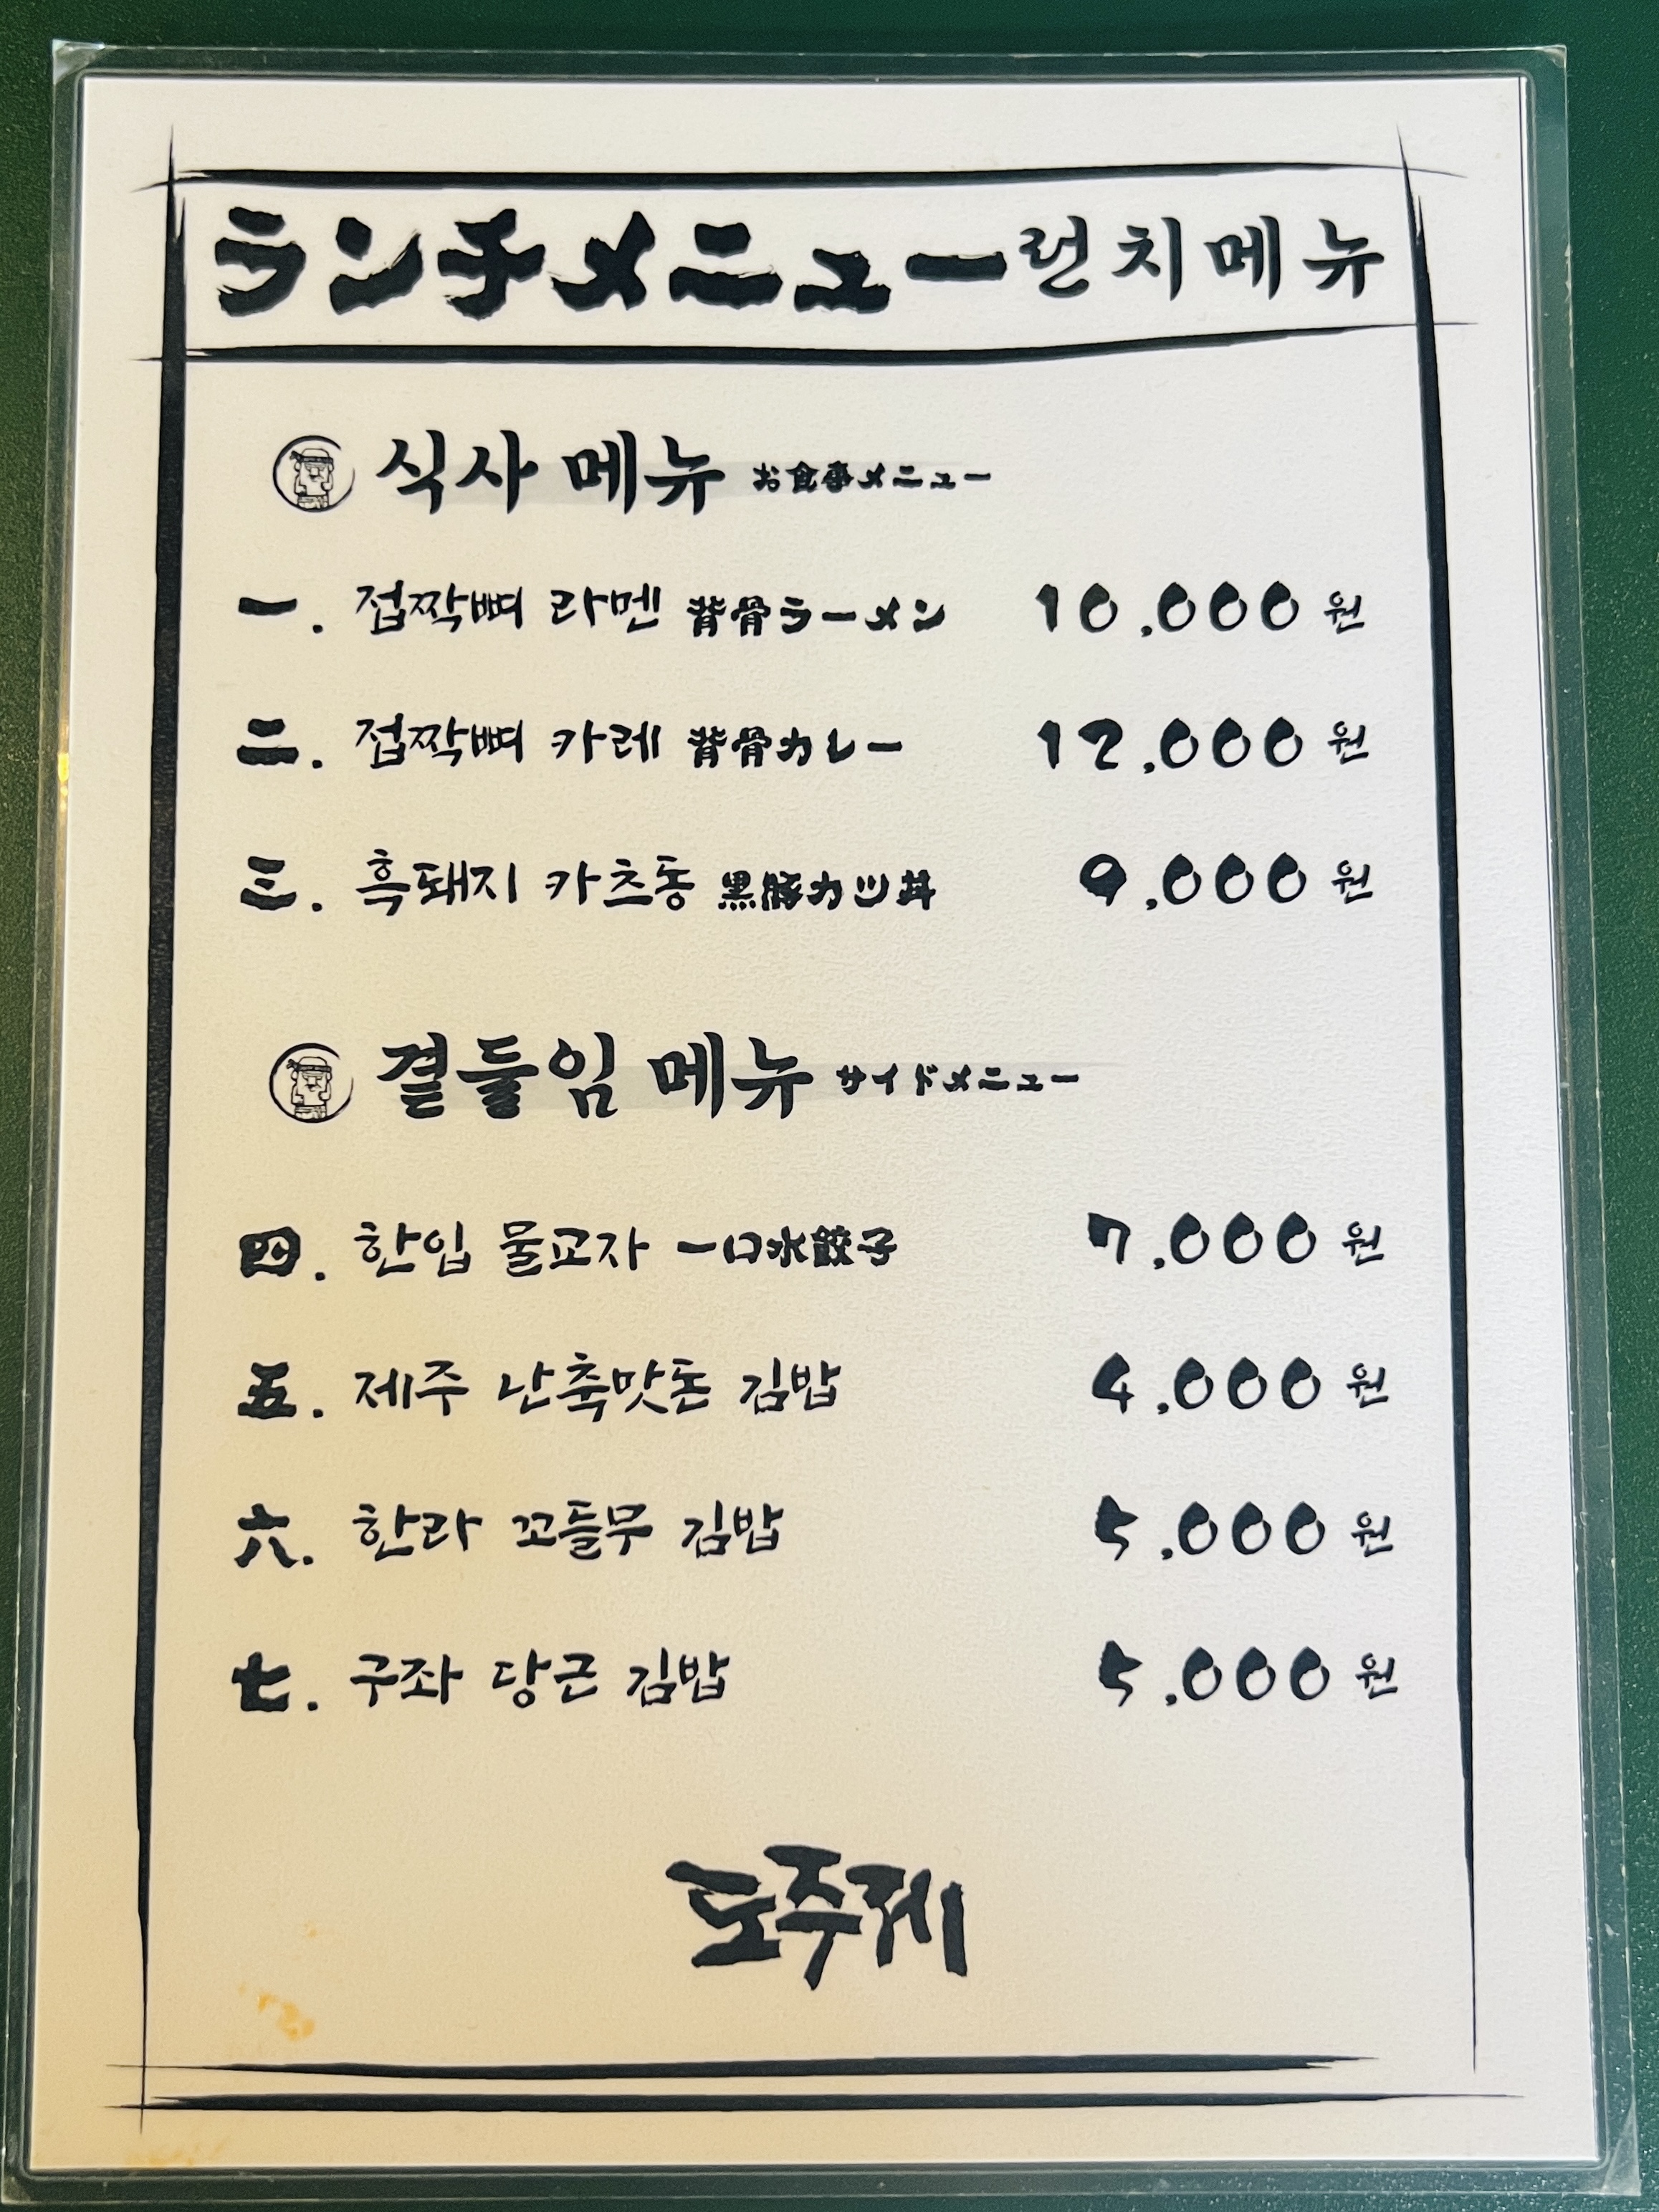 ランチメニュー런치메뉴
식사 메뉴 お食事メニュー
一. 접짝뼈 라멘 背骨ラーメン 10,000 원
二. 접짝뼈 카레 背骨カレー 12,000 원
三. 흑돼지 카츠동 黒豚カツ丼 9,000 원
곁들임 메뉴 サイドメニュー
四. 한입 물교자 一口水餃子 7,000 원
五. 제주 난축맛돈 김밥 4,000 원
六. 한라 꼬들무 김밥 5,000 원
七. 구좌 당근 김밥 5,000 원
도주제